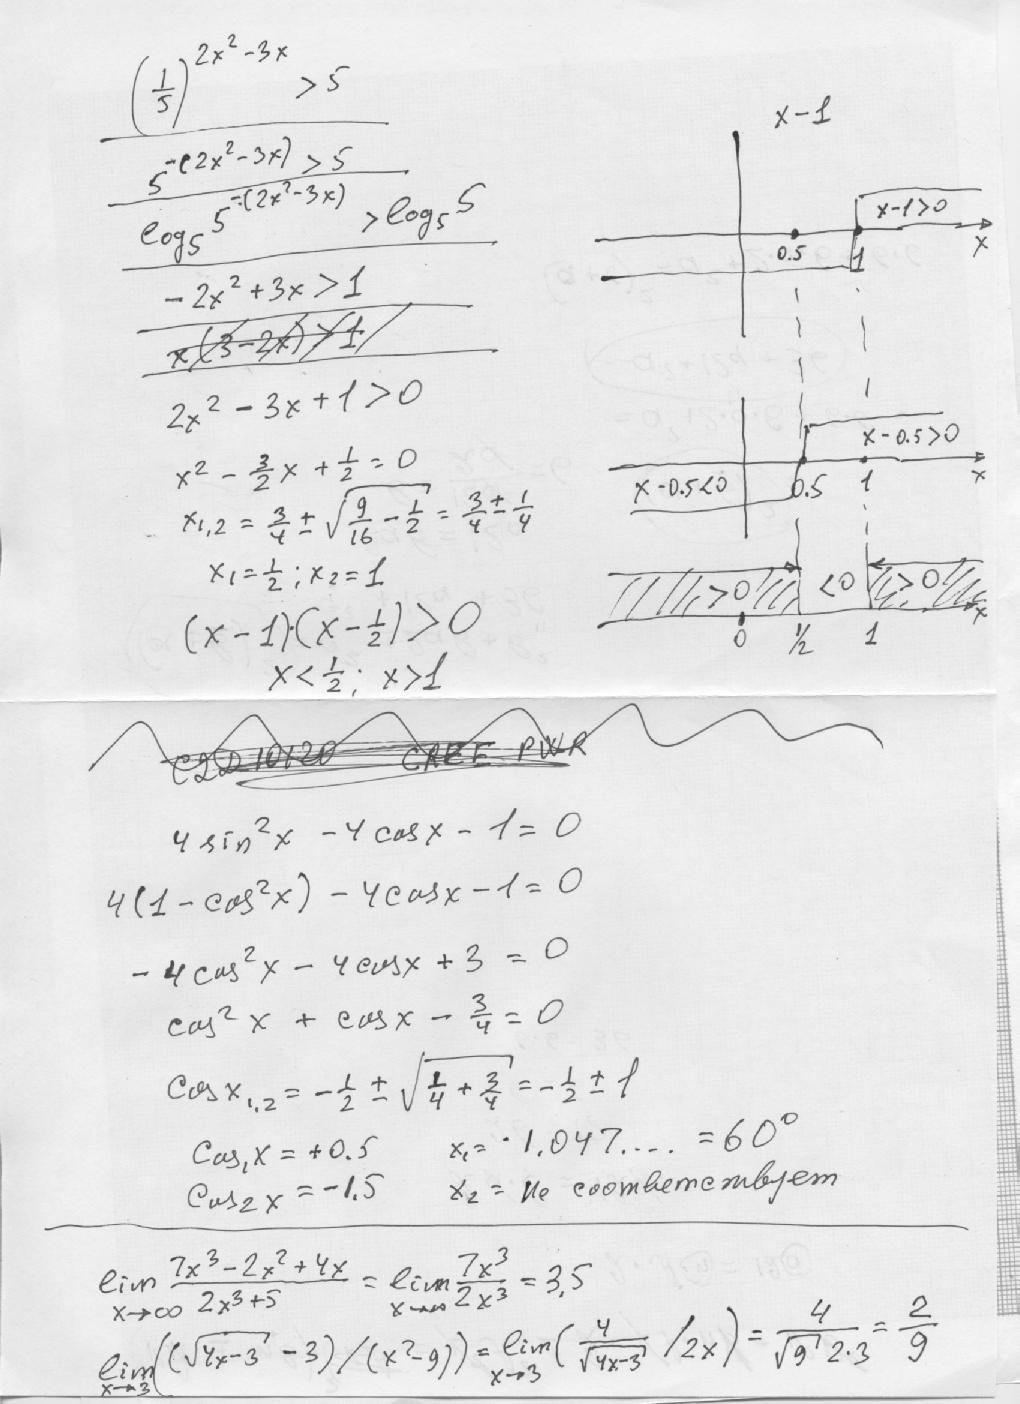 (1/5)^(2x²-3x) > 5
5^-(2x²-3x) > 5
log₅ 5^-(2x²-3x) > log₅ 5
-2x² + 3x > 1
x(3-2x) > 1
2x² - 3x + 1 > 0
x² - 3/2 x + 1/2 = 0
x₁,₂ = 3/4 ± √(9/16 - 1/2) = 3/4 ± 1/4
x₁ = 1/2 ; x₂ = 1
(x-1)·(x-1/2) > 0
x < 1/2 ; x > 1
x-1
x-1>0
0.5 1 x
x-0.5>0
x-0.5<0 0.5 1 x
>0 <0 >0 x
0 1/2 1
4 sin²x - 4 cos x - 1 = 0
4(1 - cos²x) - 4 cos x - 1 = 0
- 4 cos²x - 4 cos x + 3 = 0
cos²x + cos x - 3/4 = 0
cos x₁,₂ = -1/2 ± √(1/4 + 3/4) = -1/2 ± 1
cos₁x = +0.5 x₁ = 1,047.... = 60°
cos₂x = -1,5 x₂ = не соответствует
lim x→∞ (7x³ - 2x² + 4x)/(2x³ + 5) = lim x→∞ 7x³/2x³ = 3,5
lim x→3 ((√(4x-3) - 3)/(x²-9)) = lim x→3 (4/√(4x-3) / 2x) = 4/(√9 2·3) = 2/9